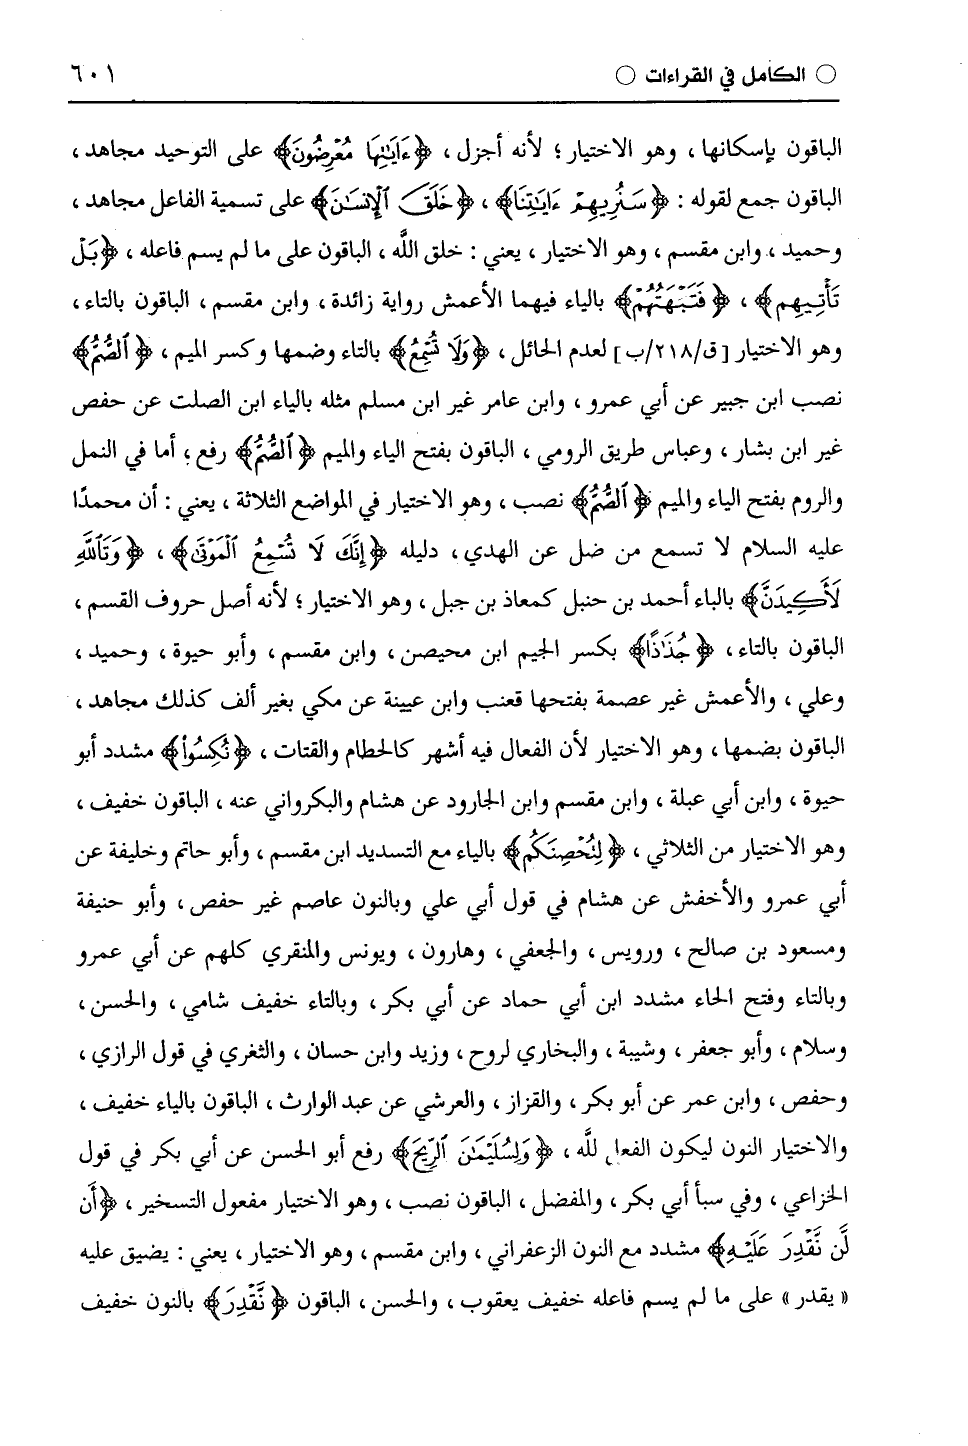 ○ الكامل في القراءات ○ ٦٠١
الباقون بإسكانها ، وهو الاختيار ؛ لأنه أجزل ، ﴿ءَايَٰتِهَا مُعْرِضُونَ﴾ على التوحيد مجاهد ،
الباقون جمع لقوله : ﴿سَنُرِيهِمْ ءَايَٰتِنَا﴾ ، ﴿خَلَقَ ٱلْإِنسَٰنَ﴾ على تسمية الفاعل مجاهد ،
وحميد ، وابن مقسم ، وهو الاختيار ، يعني : خلق اللَّه ، الباقون على ما لم يسم فاعله ، ﴿بَلْ
تَأْتِيهِم﴾ ، ﴿فَتَبْهَتُهُمْ﴾ بالياء فيهما الأعمش رواية زائدة ، وابن مقسم ، الباقون بالتاء ،
وهو الاختيار [ق/٢١٨/ب] لعدم الحائل ، ﴿وَلَا تُسْمِعُ﴾ بالتاء وضمها وكسر الميم ، ﴿ٱلصُّمَّ﴾
نصب ابن جبير عن أبي عمرو ، وابن عامر غير ابن مسلم مثله بالياء ابن الصلت عن حفص
غير ابن بشار ، وعباس طريق الرومي ، الباقون بفتح الياء والميم ﴿ٱلصُّمُّ﴾ رفع ، أما في النمل
والروم بفتح الياء والميم ﴿ٱلصُّمَّ﴾ نصب ، وهو الاختيار في المواضع الثلاثة ، يعني : أن محمدًا
عليه السلام لا تسمع من ضل عن الهدي ، دليله ﴿إِنَّكَ لَا تُسْمِعُ ٱلْمَوْتَىٰ﴾ ، ﴿وَتَٱللَّهِ
لَأَكِيدَنَّ﴾ بالباء أحمد بن حنبل كمعاذ بن جبل ، وهو الاختيار ؛ لأنه أصل حروف القسم ،
الباقون بالتاء ، ﴿جُذَٰذًا﴾ بكسر الجيم ابن محيصن ، وابن مقسم ، وأبو حيوة ، وحميد ،
وعلي ، والأعمش غير عصمة بفتحها قعنب وابن عيينة عن مكي بغير ألف كذلك مجاهد ،
الباقون بضمها ، وهو الاختيار لأن الفعال فيه أشهر كالحطام والقتات ، ﴿نُكِسُوا۟﴾ مشدد أبو
حيوة ، وابن أبي عبلة ، وابن مقسم وابن الجارود عن هشام والبكرواني عنه ، الباقون خفيف ،
وهو الاختيار من الثلاثي ، ﴿لِتُحْصِنَكُم﴾ بالياء مع التسديد ابن مقسم ، وأبو حاتم وخليفة عن
أبي عمرو والأخفش عن هشام في قول أبي علي وبالنون عاصم غير حفص ، وأبو حنيفة
ومسعود بن صالح ، ورويس ، والجعفي ، وهارون ، ويونس والمنقري كلهم عن أبي عمرو
وبالتاء وفتح الحاء مشدد ابن أبي حماد عن أبي بكر ، وبالتاء خفيف شامي ، والحسن ،
وسلام ، وأبو جعفر ، وشيبة ، والبخاري لروح ، وزيد وابن حسان ، والثغري في قول الرازي ،
وحفص ، وابن عمر عن أبو بكر ، والقزاز ، والعرشي عن عبد الوارث ، الباقون بالياء خفيف ،
والاختيار النون ليكون الفعل للَّه ، ﴿وَلِسُلَيْمَٰنَ ٱلرِّيحَ﴾ رفع أبو الحسن عن أبي بكر في قول
الخزاعي ، وفي سبأ أبي بكر ، والمفضل ، الباقون نصب ، وهو الاختيار مفعول التسخير ، ﴿أَن
لَّن نَّقْدِرَ عَلَيْهِ﴾ مشدد مع النون الزعفراني ، وابن مقسم ، وهو الاختيار ، يعني : يضيق عليه
« يقدر » على ما لم يسم فاعله خفيف يعقوب ، والحسن ، الباقون ﴿نَّقْدِرَ﴾ بالنون خفيف